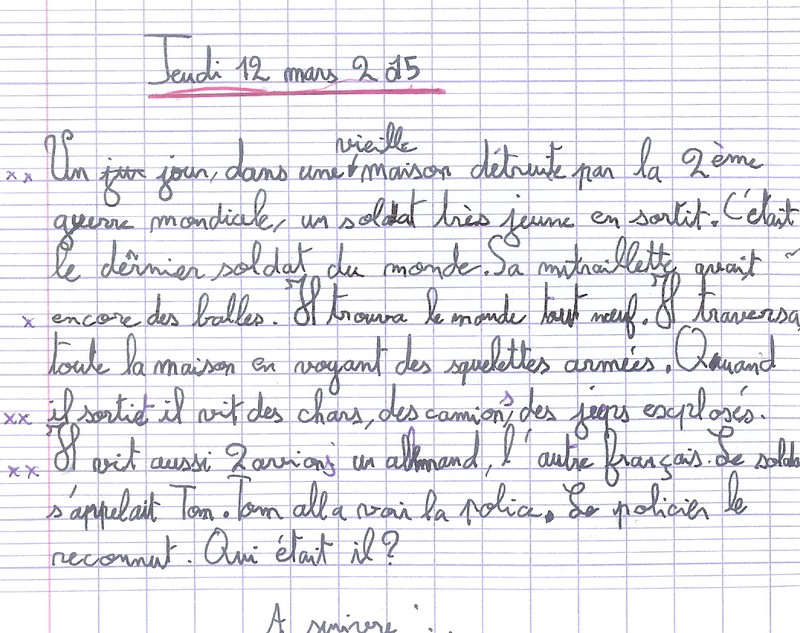 Jeudi 12 mars 2015
vieille
xx Un jour, dans une maison détruite par la 2ème
guerre mondiale, un soldat très jeune en sortit. C'était
le dernier soldat du monde. Sa mitraillette avait
x encore des balles. Il trouva le monde tout neuf. Il traversa
toute la maison en voyant des squelettes armées. Quand
xx il sortiet il vit des chars, des camions, des jeeps explosés.
xx Il vit aussi 2 avions un allmand, l'autre français. Le solda
s'appelait Tom. Tom alla voir la police. Le policier le
reconnut. Qui était il ?
A suivre ...